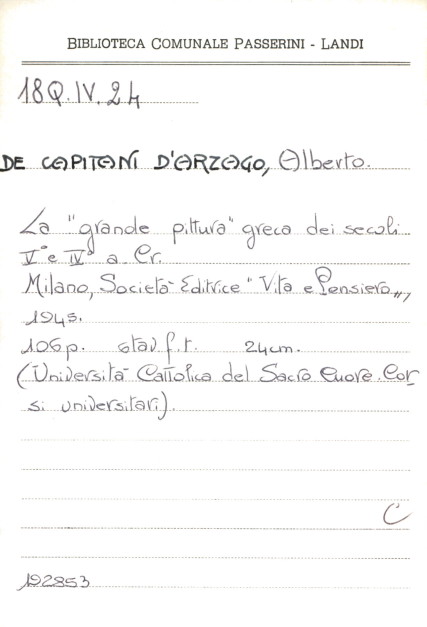 BIBLIOTECA COMUNALE PASSERINI - LANDI
18Q.IV.24
DE CAPITANI D'ARZAGO, Alberto.
La "grande pittura" greca dei secoli
V° e IV° a. Cr.
Milano, Società Editrice "Vita e Pensiero",
1945.
106p. 6tav.f.t. 24cm.
(Università Cattolica del Sacro Cuore. Cor
si universitari).
C
192853